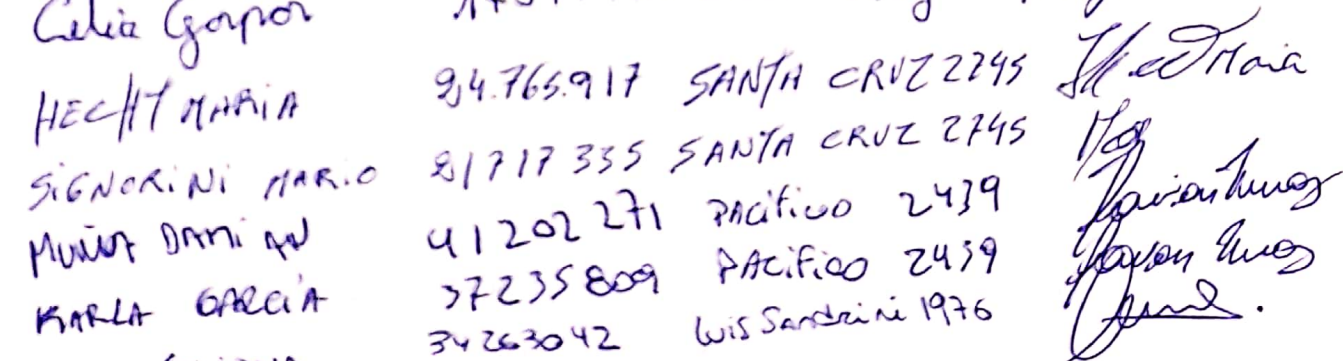 Celia Gaspar
HECHT MARIA 24.765.917 SANTA CRUZ 2745
SIGNORINI MARIO 21717335 SANTA CRUZ 2745
MUÑOZ DAMIAN 41202271 PACIFICO 2439
KARLA GARCIA 37235809 PACIFICO 2439
34263042 Luis Sandrini 1976